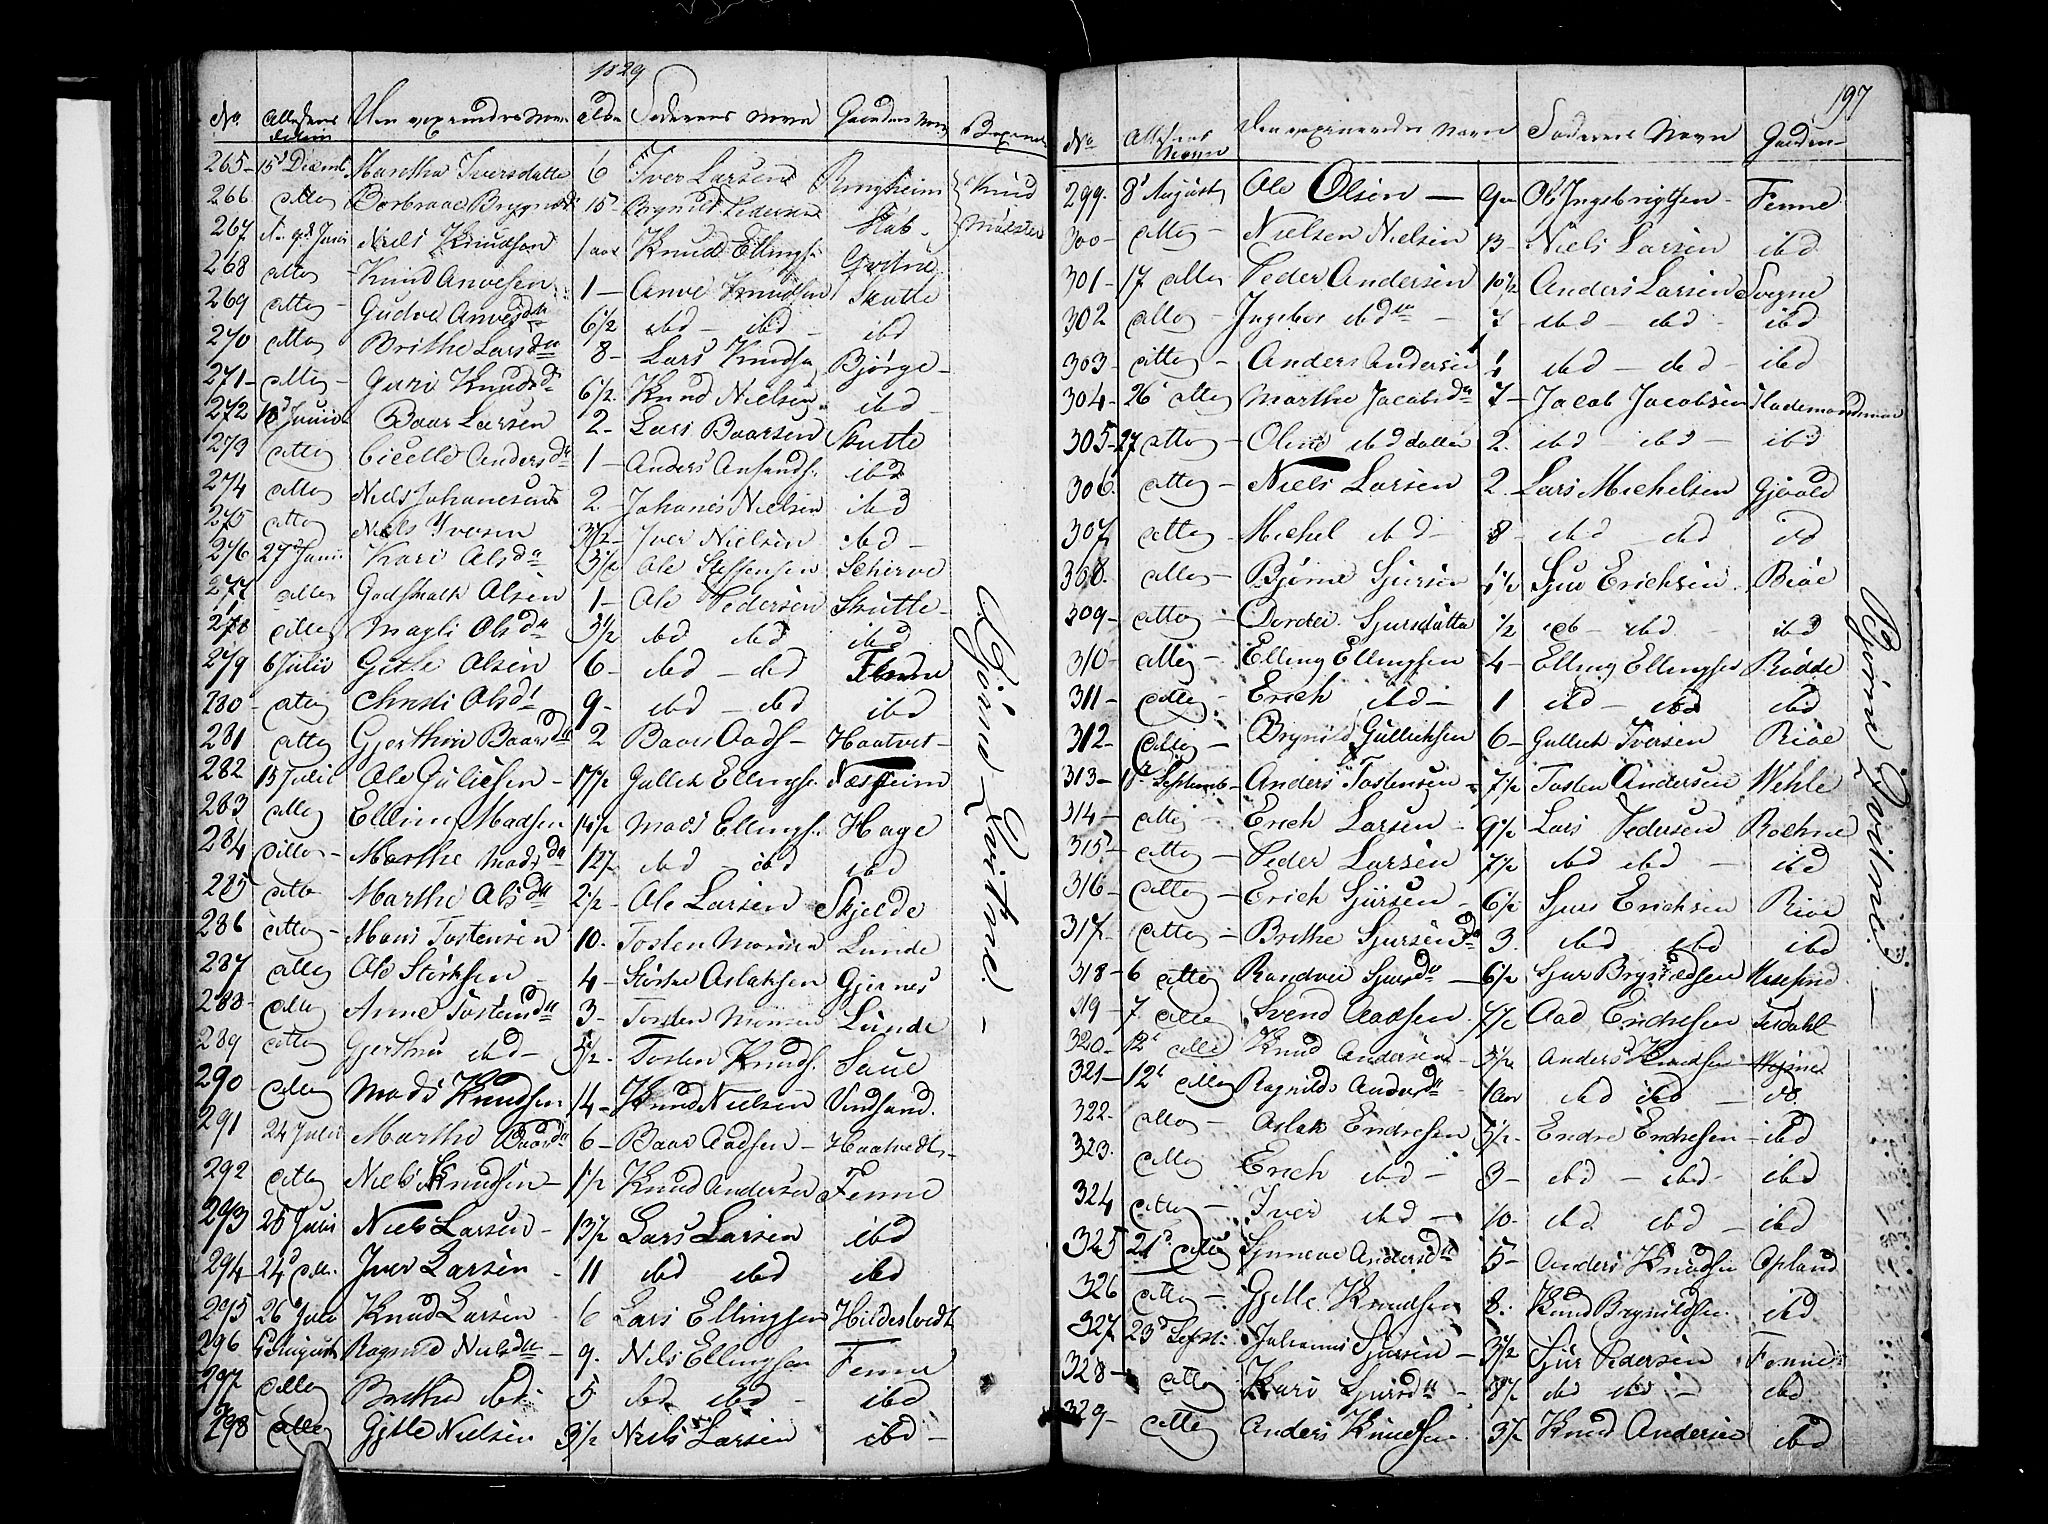 1829
No Attestens Datum Den vaxineredes Navn Alder Faderens Navn Gaardens Navn
265 15d Decemb Maretha Iversdatter 6 Iver Larsen Ringheim Knud
266 atto 15 Brynild Pedersen Mølster
267 9d Juni Niels Knudsen 1 aar Knud Ellings: Gvitne
268 atto Knud Anvesen 1 Anve Knudsen Skutle
269 atto Gudve Anvesdtr 6 1/2 ibd ibd ibd
270 atto Brithe Larsdtr 8 Lars Knudsen Bjørge
271 atto Guri Knudsdtr 6 1/2 Knud Nielsen ibd
272 Baar Larsen 2 Lars Baarsen Skutle
273 atto Cicelle Andersdtr 1 Anders ibd
274 atto Niels Johanesen 2 Johanes Nielsen ibd
275 atto Niels Iversen 3 1/2 Iver Nielsen ibd
276 27d Juni Kari Olsdtr 3 1/2 Ole Steffensen Schirve
277 atto Godskalk Olsen 1 Ole Pedersen Skutle
278 atto Magli Olsdtr 3 1/2 ibd ibd ibd
279 6 Julio Gitle Olsen 6 ibd ibd Fenne
280 atto Christi Olsdt 9 ibd ibd ibd
281 atto Gjerthru Baarsdtr 2 Baar Aads Haatvet
282 13 Julii Ole Gulicsen 17 1/2 Gullik Ellings: Næsheim
283 atto Elling Madsen 14 1/2 Mads Ellings: Hage
284 atto Marthe Madsdtr 12 ibd ibd ibd
285 atto Marthe Olsdtr 2 1/2 Ole Larsen Skjelde
286 atto Mons Tostensen 10 Tosten Monsen Lunde
287 atto Ole Størksen 4 Størker Aslaksen Gjernes
288 atto Anne Tostensdtr 3 Tosten Monsen Lunde
289 atto Gjerthru ibd 5 1/2 Tosten Knuds. Saue
290 atto Mads Knudsen 14 Knud Nielsen Vindsand
291 24 Julii Marthe Baarsdtr 6 Baar Aadsen Haatvedt
292 atto Niels Knudsen 1 1/2 Knud Andersen Fenne
293 25 Julii Niels Larsen 13 1/2 Lars Larsen ibd
294 24d Iver Larsen 11 ibd ibd ibd
295 26 Julii Knud Larsen 6 Lars Ellingsen Hildesvedt
296 August Ragnild Nielsdtr 9 Nils Ellingsen Fenne
297 atto Brithe ibd 5 ibd ibd ibd
298 atto Gjitle Nielsen 3 1/2 Niels Larsen ibd
Bjørne Qvitne
197
No Attestens Navn Den vaxineredes Navn Faderens Navn Gaarden
299 8d August Ole Olsen 9 Ol Ingebrigtsen Fenne
300 atto Nielsen Nielsen 13 Niels Larsen ibd
301 17 atto Peder Andersen 10 1/2 Anders Larsen
302 atto Ingebor ibdtr 7 ibd ibd ibd
303 atto Anders Andersen 1 ibd ibd ibd
304 26 atto Marthe Jacobsdtr 7 Jacob Jacobsen
305 27 atto Oline ibd datter 2 ibd ibd ibd
306 atto Niels Larsen 2 Lars Michelsen Gjøald
307 atto Michel ibd 8 ibd ibd id
308 atto Bjørne Sjursen 1 1/2 Sjur Erichsen Riøe
309 atto Dordei Sjursdatter 1/2 ibd ibd
310 atto Elling Ellingsen 4 Elling Ellingsen Rødde
311 atto Erich ibd 1 ibd ibd ibd
312 atto Brynild Gullichsen 6 Gullich Iversen Riøe
313 1d Septemb Anders Tostensen 7 1/2 Tosten Andersen Wehle
314 atto Erich Larsen 9 1/2 Lars Pedersen Rochne
315 atto Peder Larsen 7 1/2 ibd ibd ibd
316 atto Erich Sjursen 6 1/2 Sjur Erichsen Riøe
317 atto Brithe Sjursensdtr 3 ibd ibd ibd
318 6 atto Randvei Sjursdtr 6 1/2 Sjur Brynildsen
319 7 atto Svend Aadsen 7 1/2 Aad Endresen Tesdahl
320 12d atto Knud Andersen 5 1/2 Anders Knudsen
321 12d atto Ragnilde Andersdtr 1 aar ibd ibd id
322 atto Aslak Endresen 5 1/2 Endre Endresen ibd
323 atto Erich ibd 3 ibd ibd ibd
324 atto Iver ibd 10 ibd ibd ibd
325 21d atto Synneve Andersdtr 5 Anders Knudsen Opland
326 atto Gjelle Knudsen 8 Knud Brynildsen ibd
327 23d Sept: Johannes Sjursen 3 1/2 Sjur Pedersen Fenne
328 atto Kari Sjursdtr 8 1/2 ibd ibd ibd
329 atto Anders Knudsen 3 1/2 Knud Andersen ibd
Bjørne Qvitne